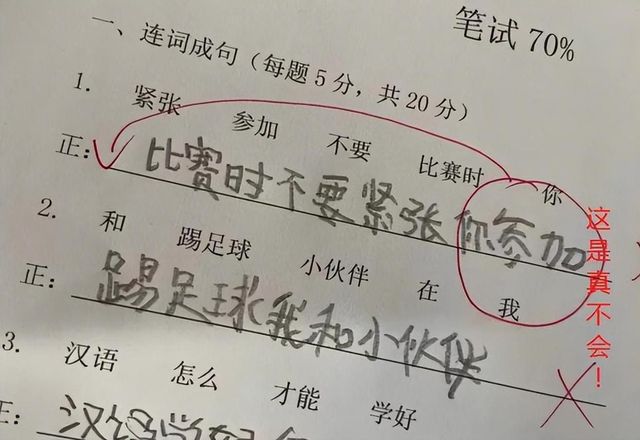 笔试 70%
一、连词成句（每题5分，共20分）
1. 紧张 参加 不要 比赛时 你
正：比赛时不要紧张你参加
2. 和 踢足球 小伙伴 在 我
正：踢足球我和小伙伴
这是真不会！
3. 汉语 怎么 才能 学好
正：汉语学好